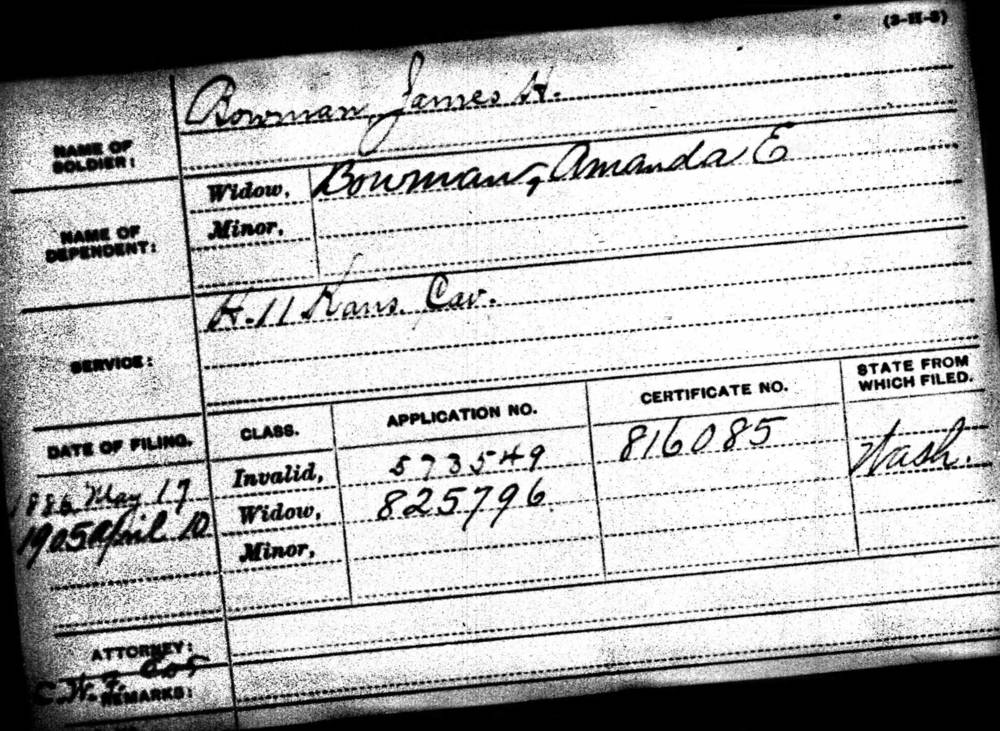 (3-II-3)
NAME OF SOLDIER: Bowman, James H.
NAME OF DEPENDENT: Widow, Bowman, Amanda E
Minor,
SERVICE: H. 11 Kans. Cav.
DATE OF FILING. CLASS. APPLICATION NO. CERTIFICATE NO. STATE FROM WHICH FILED.
1886 May 17 Invalid, 573549 816085 Wash.
1905 April 10 Widow, 825796
Minor,
ATTORNEY:
C. W. F.
REMARKS: